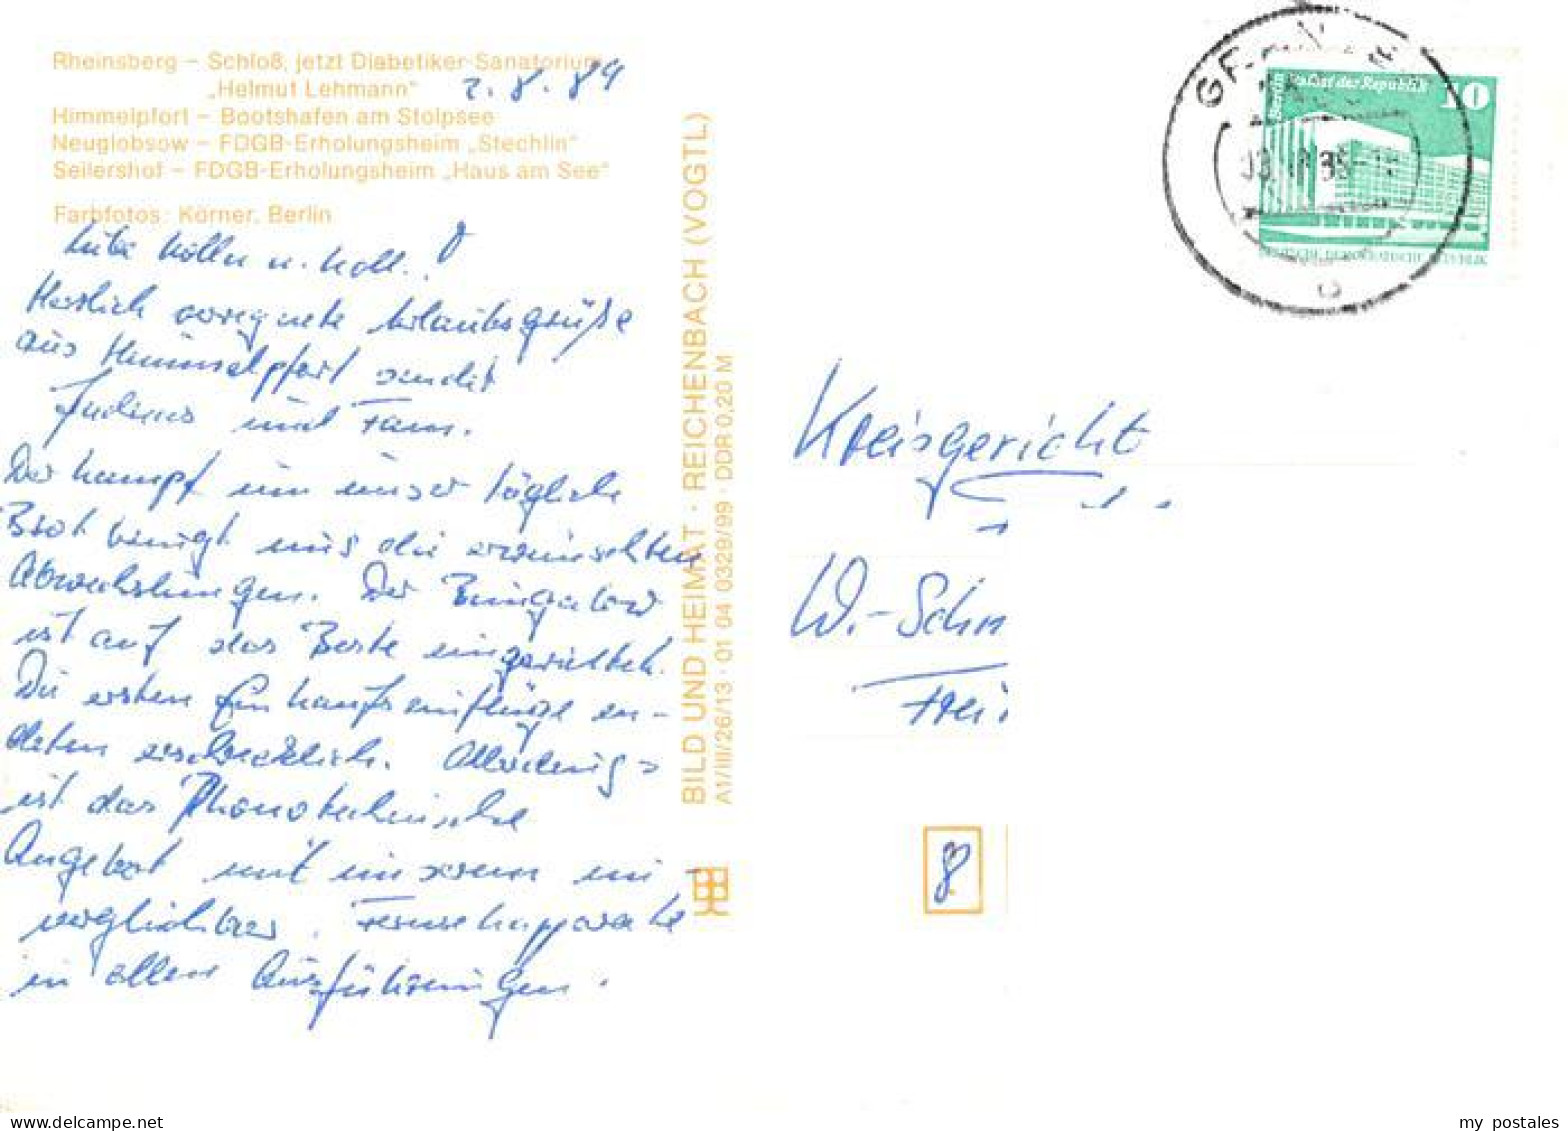 Rheinsberg – Schloß, jetzt Diabetiker-Sanatorium
„Helmut Lehmann“
2.8.89
Himmelpfort – Bootshafen am Stolpsee
Neuglobsow – FDGB-Erholungsheim „Stechlin“
Seilershof – FDGB-Erholungsheim „Haus am See“
Farbfotos: Körner, Berlin
u. Koll.!
Herzlich verregnete Urlaubsgrüße
aus Himmelpfort sendet
und Fam.
Der Kampf um unser täglich
Brot bringt uns die erwünschten
Abwechslungen. Der Bungalow
ist auf das Beste eingerichtet.
Die ersten Einkaufsausflüge en-
deten schrecklich. Allerdings
ist das Phonotechnische
Angebot mit unserem un-
vergleichbar. Fernsehapparate
in allen Ausführungen.
BILD UND HEIMAT · REICHENBACH (VOGTL)
A1/III/26/13 · 01 04 0329/99 · DDR 0,20 M
Berlin
Palast der Republik
10
DEUTSCHE DEMOKRATISCHE REPUBLIK
Kreisgericht
W.-Schn
8
my postales